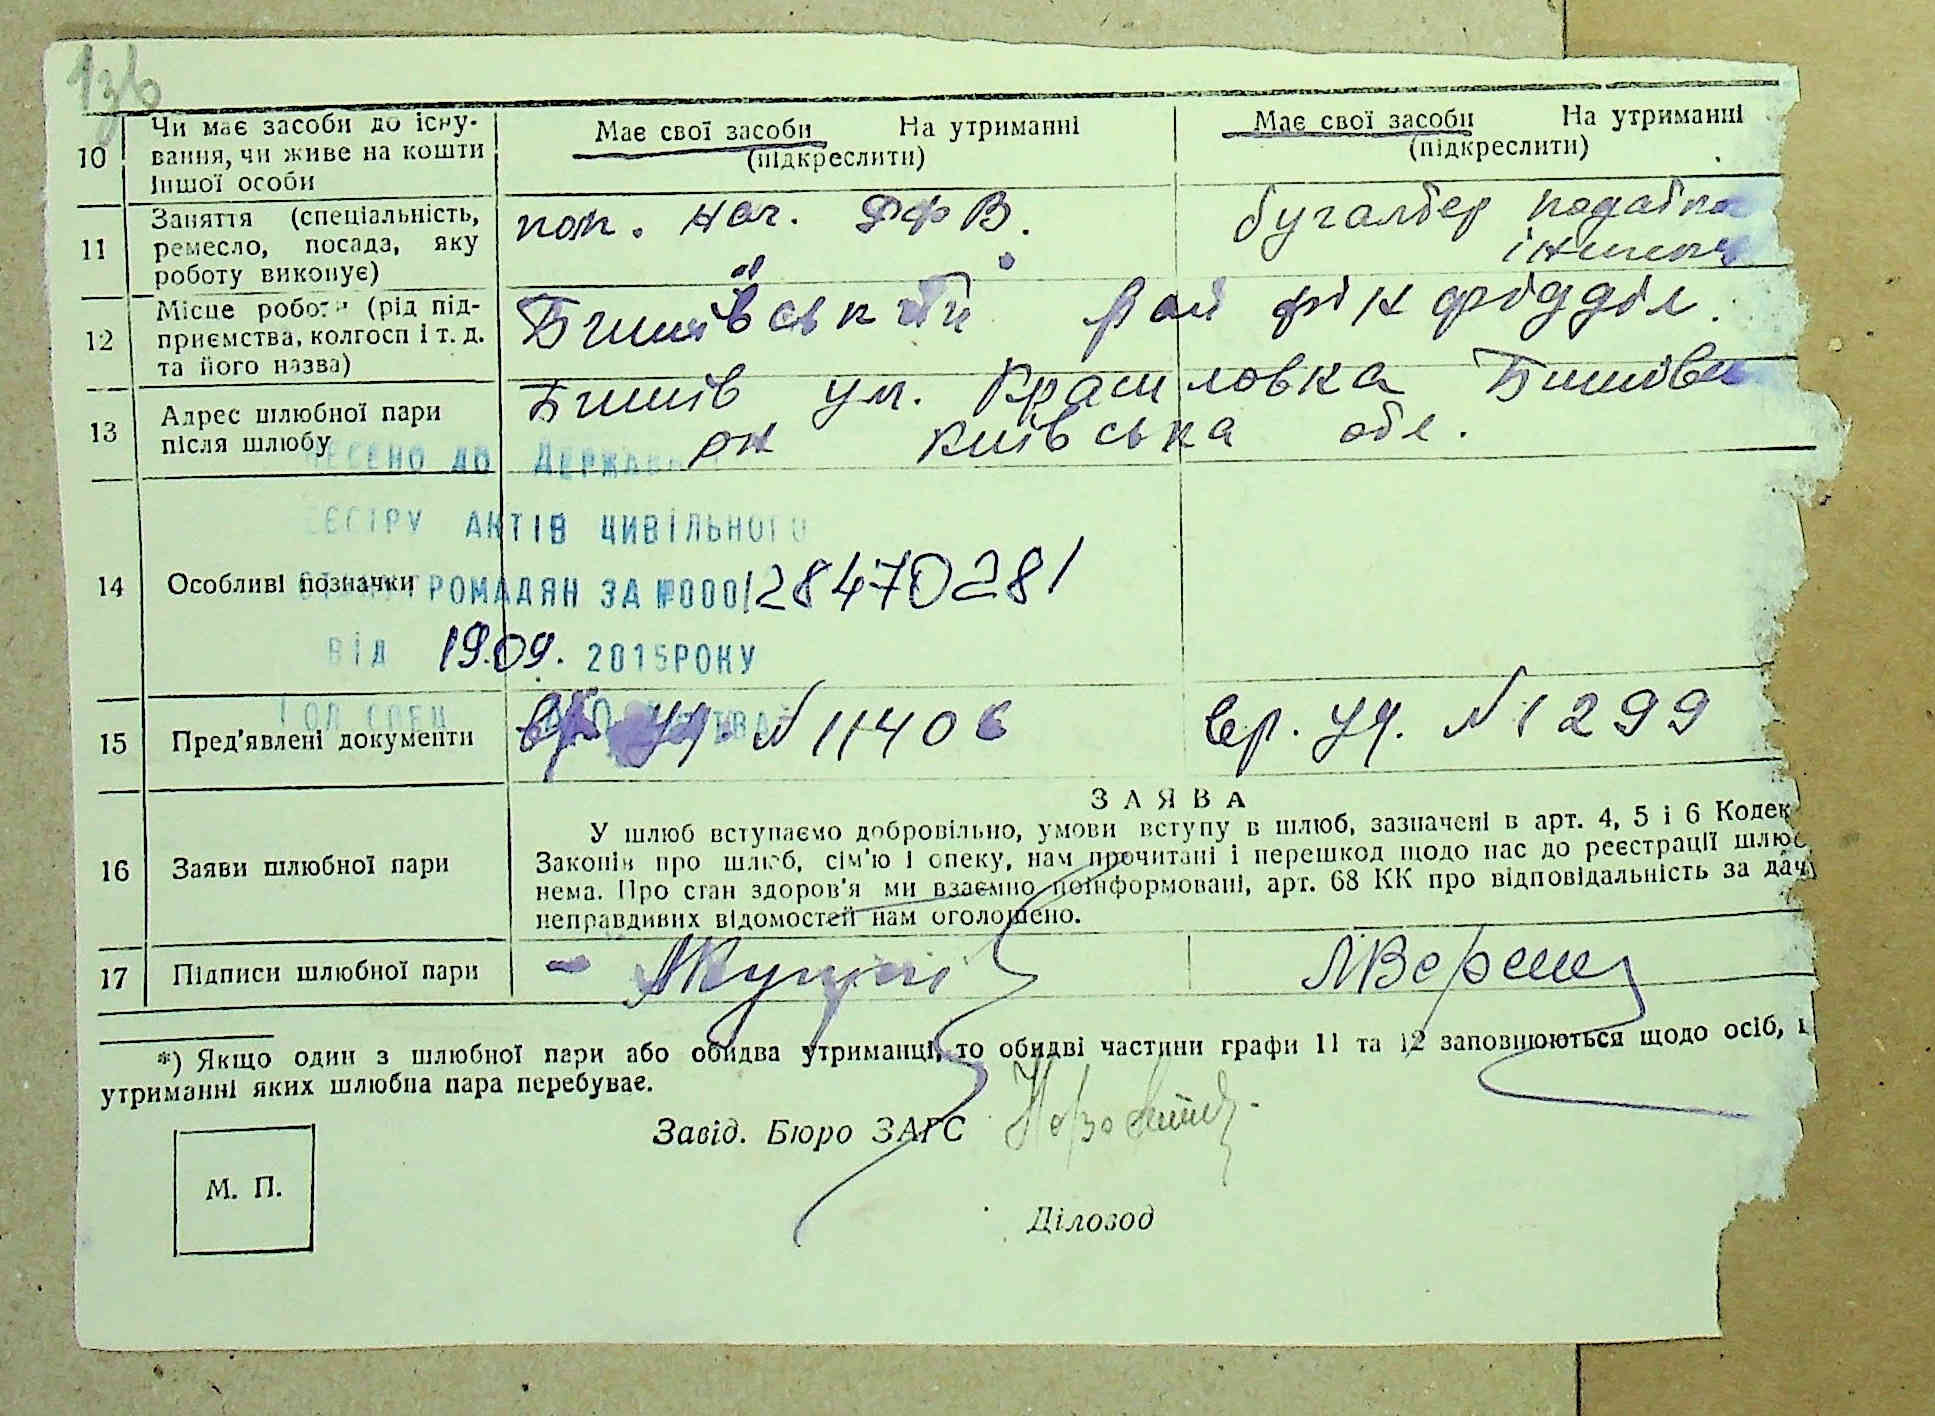 136
10
Чи має засоби до існу-
вання, чи живе на кошти
іншої особи
Має свої засоби На утриманні
(підкреслити)
Має свої засоби На утриманні
(підкреслити)
11
Заняття (спеціальність,
ремесло, посада, яку
роботу виконує)
пом. нач. ДФВ.
бугалтер
12
Місце роботи (рід під-
приємства, колгосп і т. д.
та його назва)
Бишівський рай фін фідділ.
13
Адрес шлюбної пари
після шлюбу
Бишів ул. Красиловка
рн Київська обл.
ЕСЕНО ДО ДЕРЖАВ
ЕЄСТРУ АКТІВ ЦИВІЛЬНОГО
14
Особливі позначки
ГРОМАДЯН ЗА №000128470281
ВІД 19.09. 2015РОКУ
15
Пред'явлені документи
вр. уд. N 11406
вр. уд. N 1299
16
Заяви шлюбної пари
ЗАЯВА
У шлюб вступаємо добровільно, умови вступу в шлюб, зазначені в арт. 4, 5 і 6 Кодек
Законів про шлюб, сім'ю і опеку, нам прочитані і перешкод щодо нас до реєстрації шлюб
нема. Про стан здоров'я ми взаємно поінформовані, арт. 68 КК про відповідальність за дач
неправдивих відомостей нам оголошено.
17
Підписи шлюбної пари
*) Якщо один з шлюбної пари або обидва утриманці, то обидві частини графи 11 та 12 заповнюються щодо осіб,
утриманні яких шлюбна пара перебуває.
Завід. Бюро ЗАГС
М. П.
Діловод